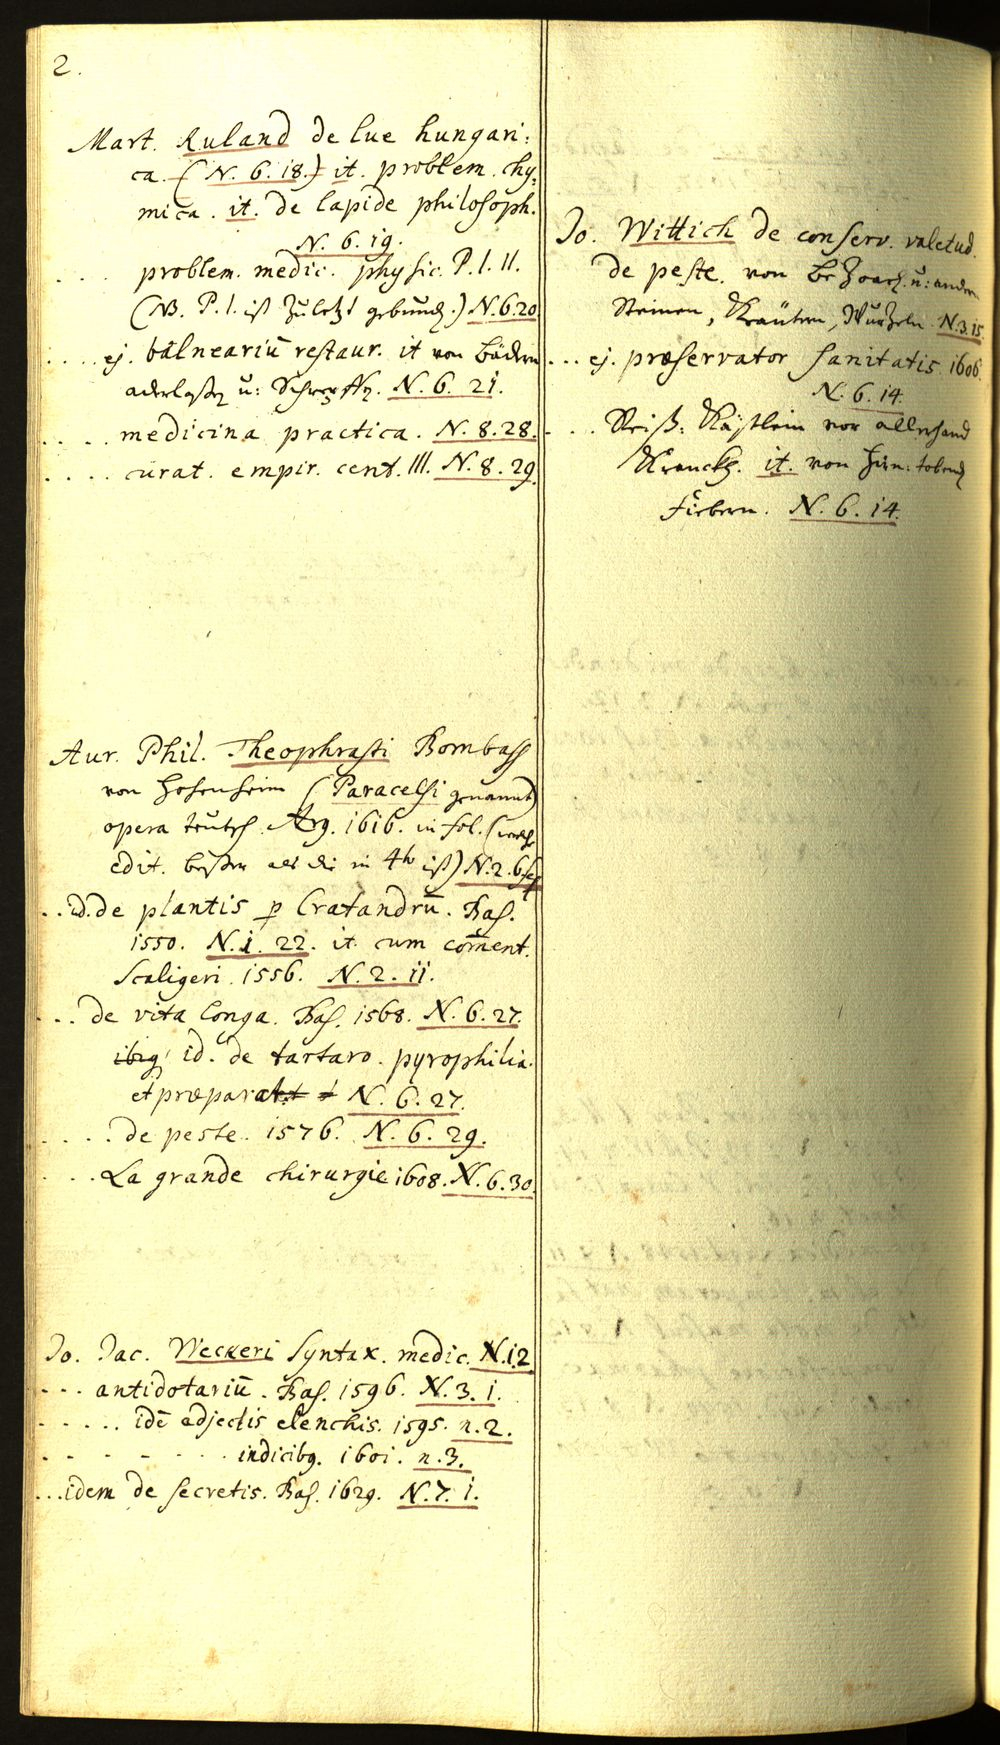 2.
Mart. Ruland de lue hungari:
ca. (N. 6. 18.) it. problem. chy:
mica. it. de lapide philosoph.
N. 6. 19.
. . . . problem. medic. physic. P. I. II.
(NB. P. I. ist zuletzt gebund.) N. 6. 20
. . . . ej. balneariū restaur. it von Bädern
aderlaßen u: Schrepffen. N. 6. 21.
. . . . medicina practica. N. 8. 28.
. . . . curat. empir. cent. III. N. 8. 29.
Aur. Phil. Theophrasti Bombast
von Hohenheim (Paracelsi genannt)
opera teutsch. Arg. 1616. in fol. (welche
edit. beßer als die in 4to ist) N. 2. 6.
. . id. de plantis p Cratandrū. Bas.
1550. N. 1. 22. it. cum com̄ent.
Scaligeri. 1556. N. 2. 11.
. . . de vita longa. Bas. 1568. N. 6. 27.
ibiq, id. de tartaro. pyrophilia.
et præparat N. 6. 27.
. . . . de peste. 1576. N. 6. 29.
. . . La grande chirurgie 1608. N. 6. 30.
Jo. Jac. Weckeri Syntax. medic. N. 1. 2
. . . antidotariū. Bas. 1596. N. 3. 1.
. . . . . idē adjectis elenchis. 1595. n. 2.
. . . . . . indicibq. 1601. n. 3.
. . . idem de secretis. Bas. 1629. N. 7. 1.
Jo. Wittich de conserv. valetud.
de peste. von Bezoard. u: andern
Steinen, Kräutern, Wurzeln N. 3. 15.
. . . ej. præservator sanitatis 1606.
N. 6. 14
. . . Reiß: Kästlein vor allerhand
Kranckh. it. von Hirn: tobend
Fiebern. N. 6. 14.